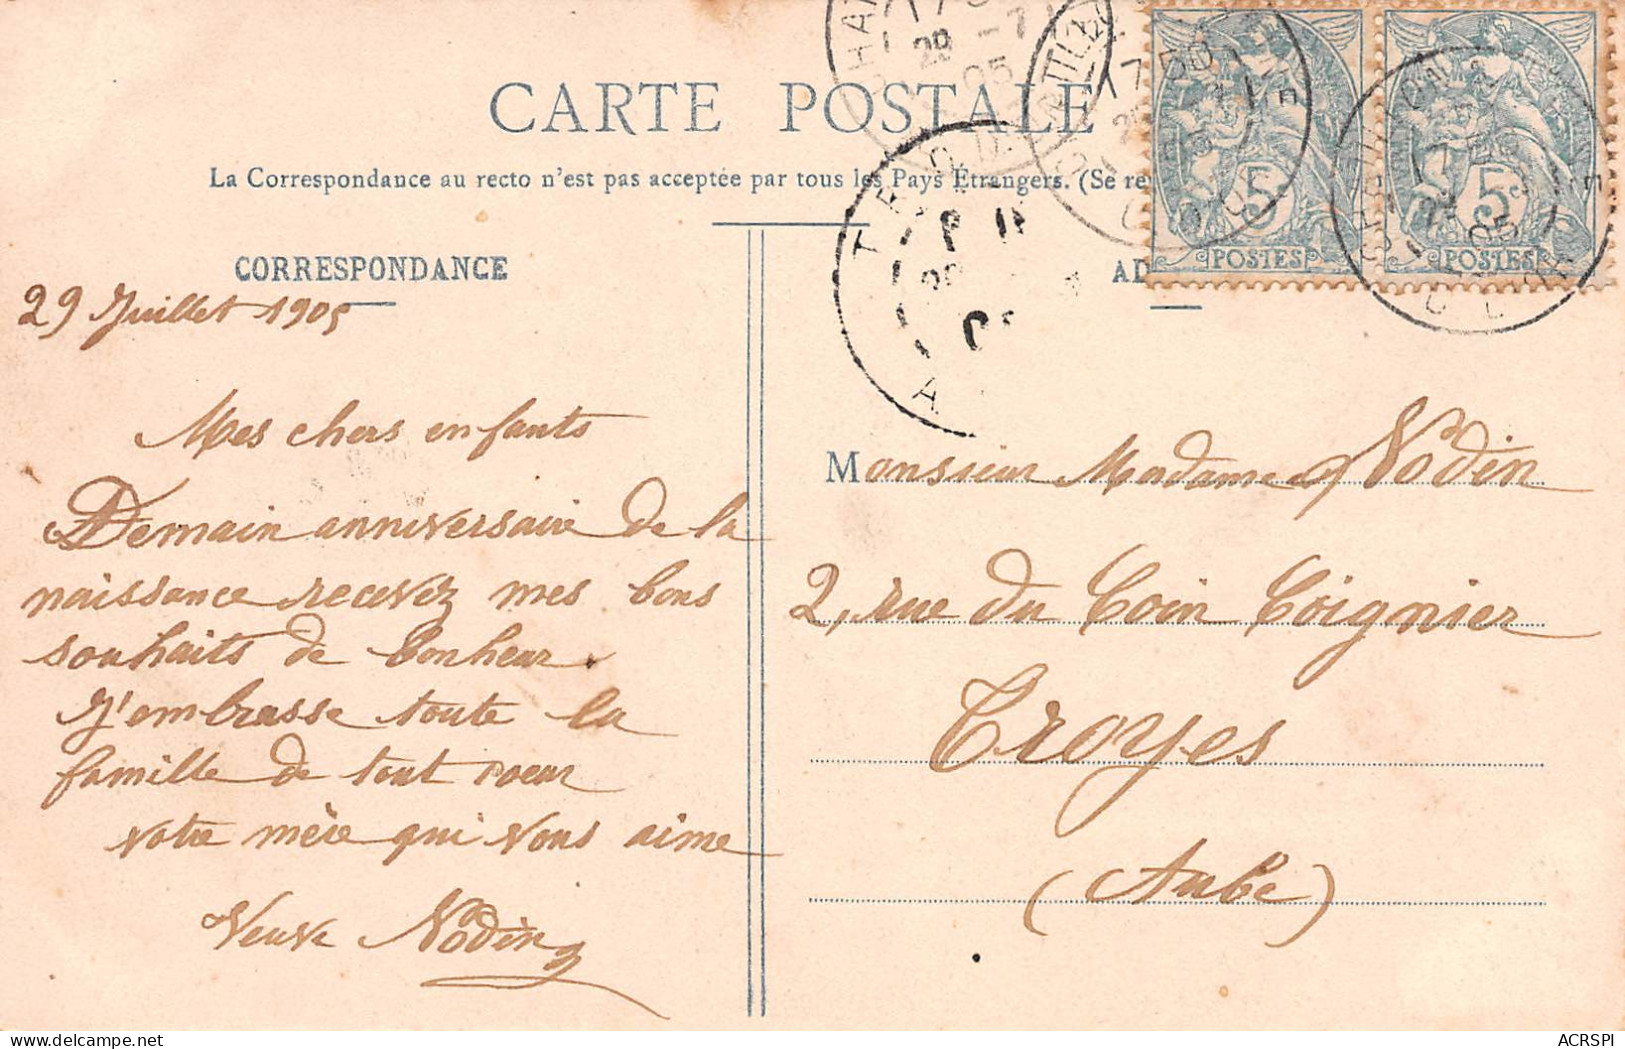 CARTE POSTALE
La Correspondance au recto n'est pas acceptée par tous les Pays Étrangers. (Se re
CORRESPONDANCE
29 Juillet 1905
Mes chers enfants
Demain anniversaire de la
naissance recevez mes bons
souhaits de bonheur.
J'embrasse toute la
famille de tout coeur
votre mère qui vous aime
Veuve Nodin
AD
5c
POSTES
5c
POSTES
Monsieur Madame Nodin
2, rue du Coin Coignier
Troyes
(Aube)
ACRSPI